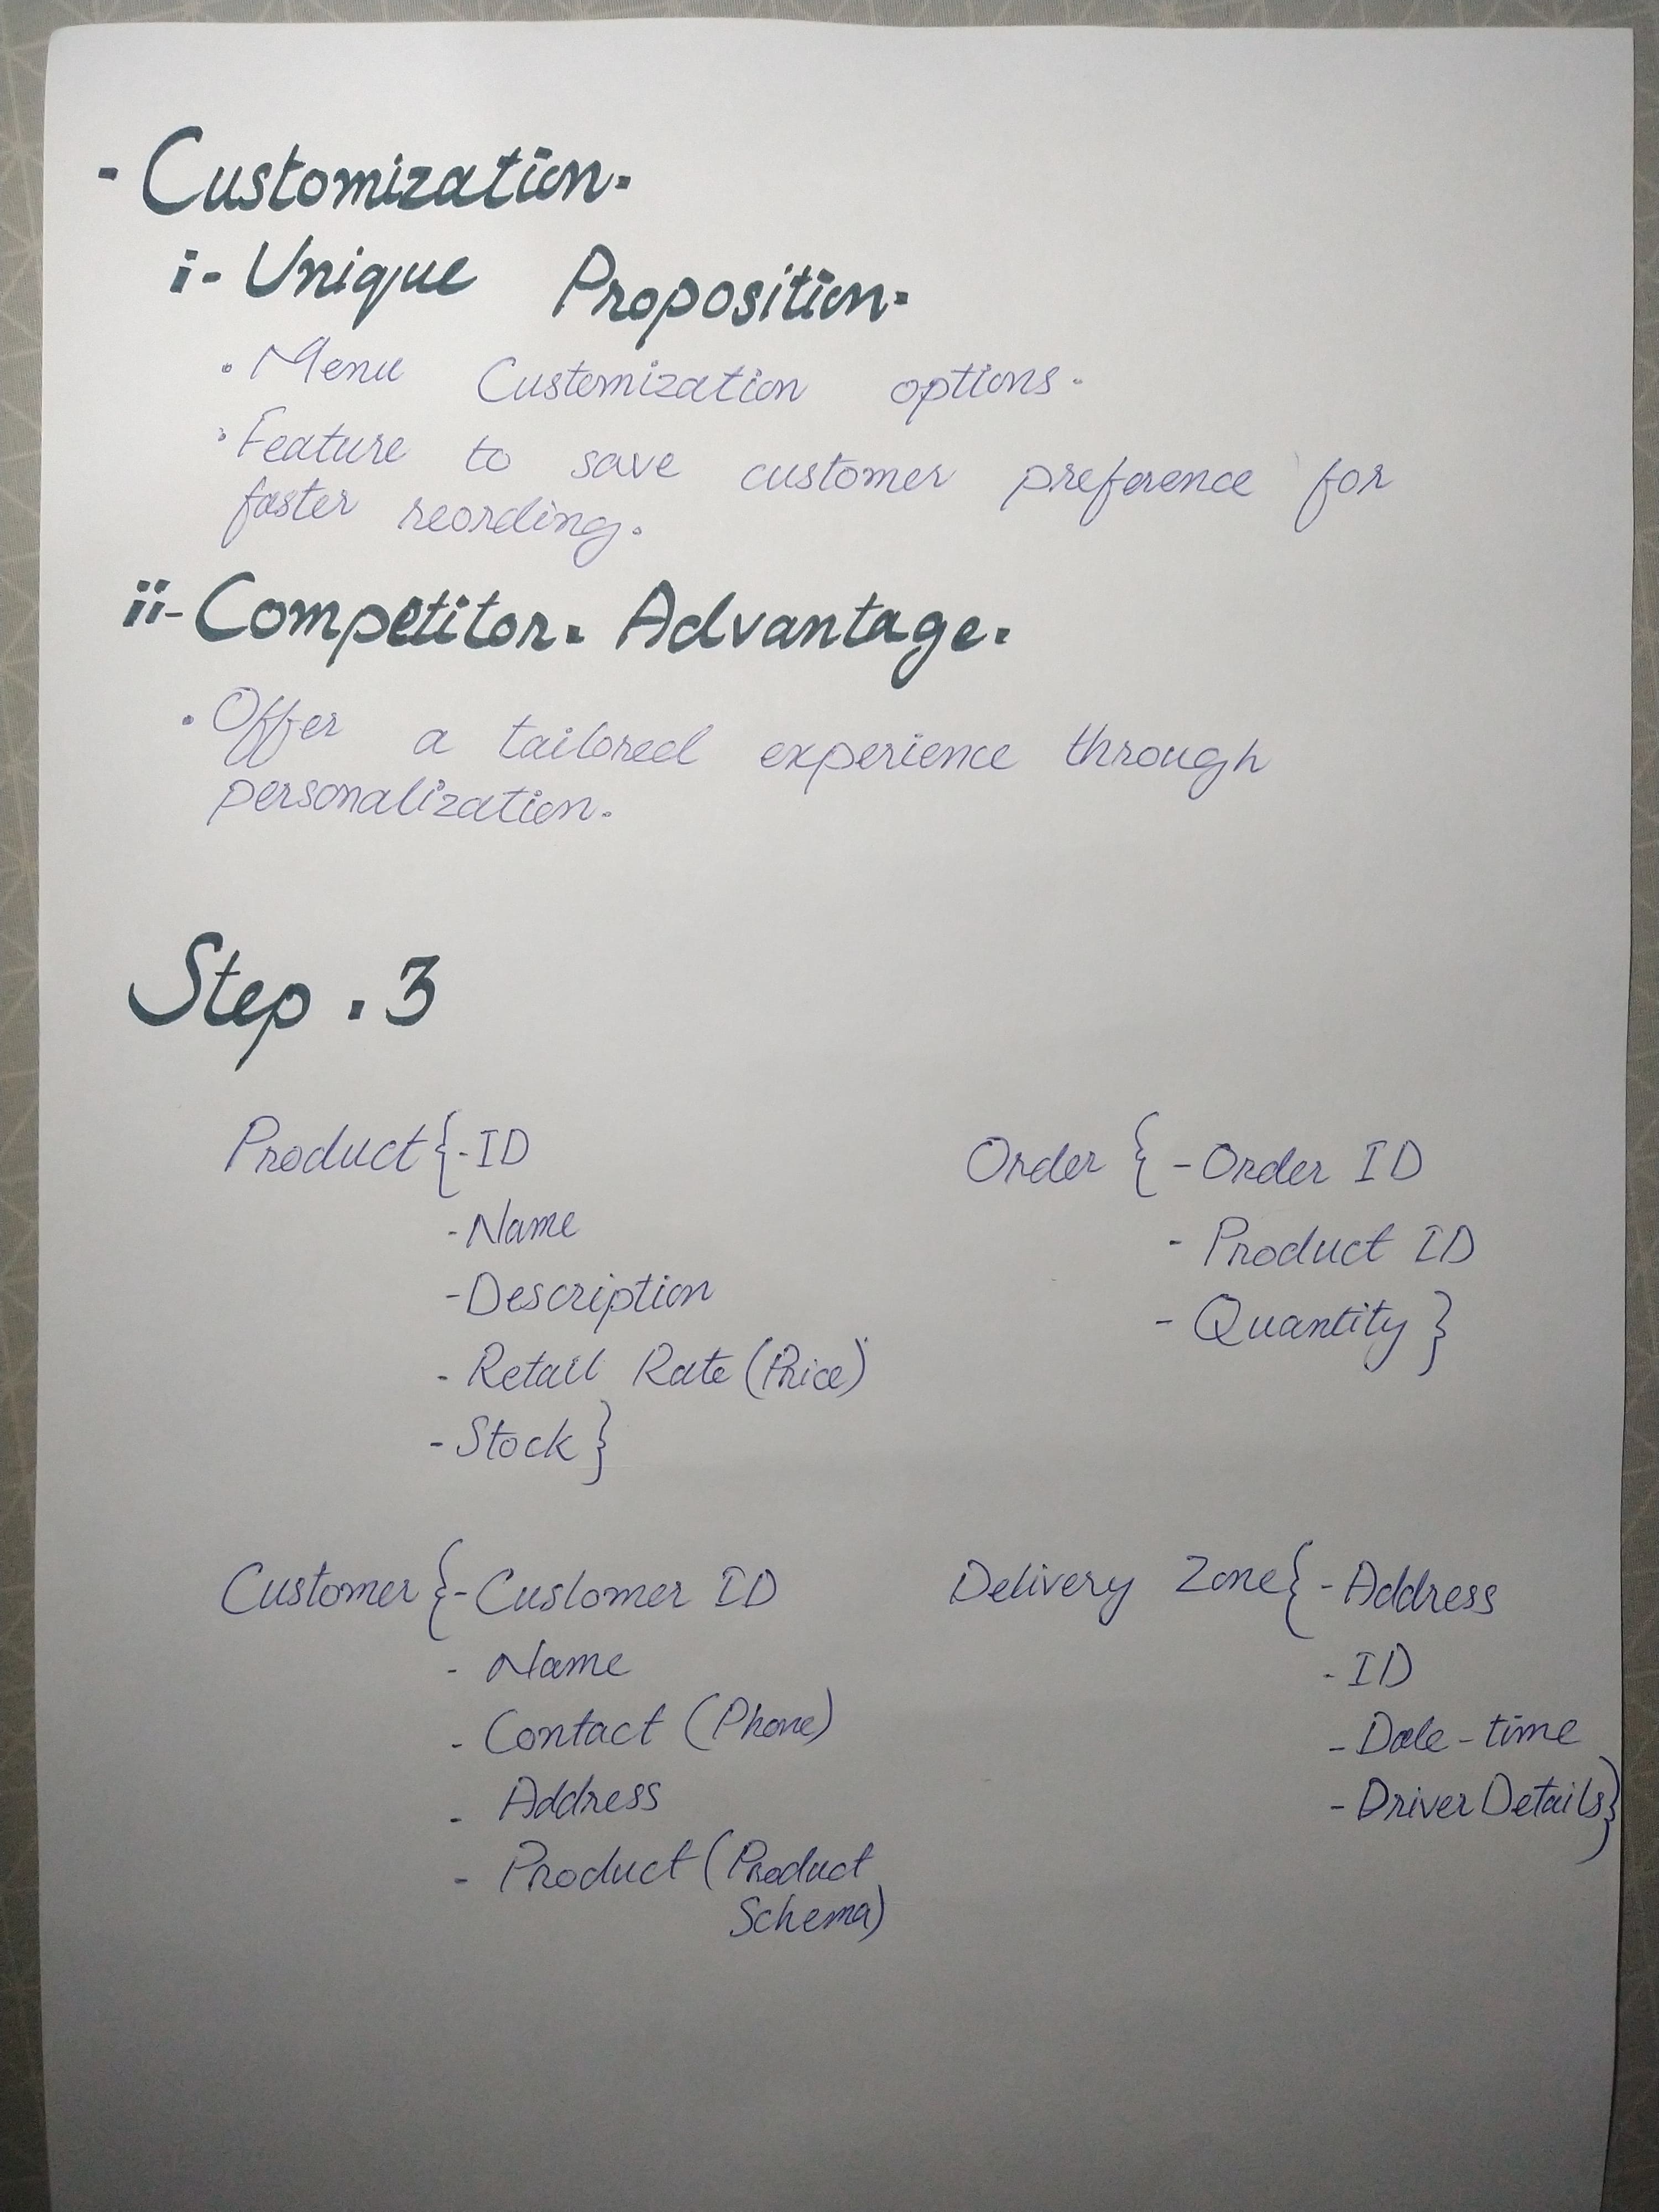 - Customization.
i- Unique Proposition.
• Menu Customization options.
• Feature to save customer preference for
faster reording.
ii- Competitor. Advantage.
• Offer a tailored experience through
personalization.
Step . 3
Product { - ID
- Name
- Description
- Retail Rate (Price)
- Stock }
Order { - Order ID
- Product ID
- Quantity }
Customer { - Customer ID
- Name
- Contact (Phone)
- Address
- Product (Product
Schema)
Delivery Zone { - Address
- ID
- Date-time
- Driver Details }